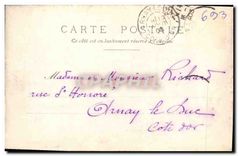 693
CARTE POSTALE
Ce côté est exclusivement réservé à l'adresse
Madame et Monsieur Richard
rue St Honoré
Arnay le Duc
Côte d'or